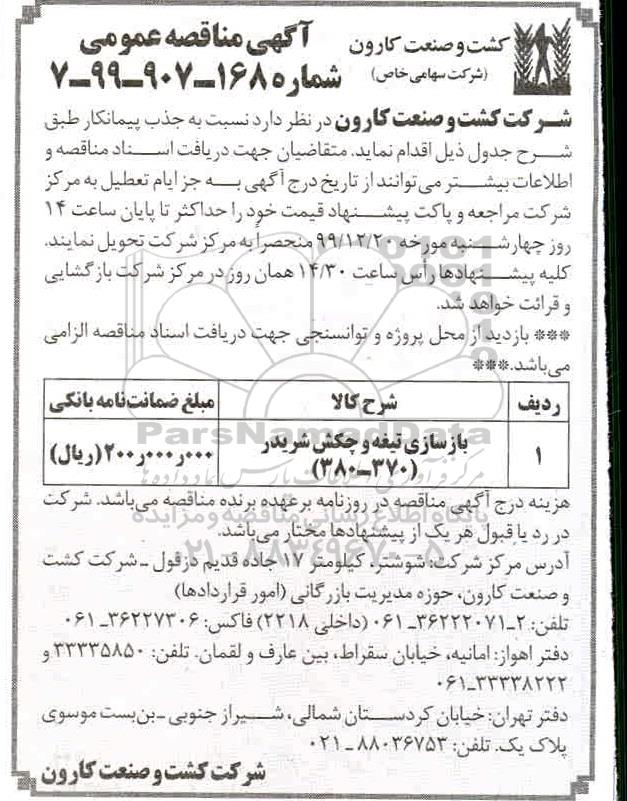 آگهی مناقصه عمومی
شماره ۱۶۸-۹۰۷-۹۹-۷
کشت و صنعت کارون
(شرکت سهامی خاص)
شرکت کشت و صنعت کارون در نظر دارد نسبت به جذب پیمانکار طبق
شرح جدول ذیل اقدام نماید. متقاضیان جهت دریافت اسناد مناقصه و
اطلاعات بیشتر می‌توانند از تاریخ درج آگهی به جز ایام تعطیل به مرکز
شرکت مراجعه و پاکت پیشنهاد قیمت خود را حداکثر تا پایان ساعت ۱۴
روز چهارشنبه مورخه ۹۹/۱۲/۲۰ منحصراً به مرکز شرکت تحویل نمایند.
کلیه پیشنهادها رأس ساعت ۱۴/۳۰ همان روز در مرکز شرکت بازگشایی
و قرائت خواهد شد.
*** بازدید از محل پروژه و توانسنجی جهت دریافت اسناد مناقصه الزامی
می‌باشد.***
ردیف شرح کالا مبلغ ضمانت‌نامه بانکی
۱ بازسازی تیغه و چکش شریدر ۲۰۰ر۰۰۰ر۰۰۰ (ریال)
(۳۷۰-۳۸۰)
ParsNamadData
مرکز فرآوری اطلاعات پارس نماد داده‌ها
هزینه درج آگهی مناقصه در روزنامه برعهده برنده مناقصه می‌باشد. شرکت
پایگاه اطلاع رسانی مناقصه و مزایده
در رد یا قبول هر یک از پیشنهادها مختار می‌باشد.
۰۲۱-۸۸۳۴۹۶۷۰-۵
آدرس مرکز شرکت: شوشتر، کیلومتر ۱۷ جاده قدیم دزفول - شرکت کشت
و صنعت کارون، حوزه مدیریت بازرگانی (امور قراردادها)
تلفن: ۲-۳۶۲۲۲۰۷۱-۰۶۱ (داخلی ۲۲۱۸) فاکس: ۳۶۲۲۷۳۰۶-۰۶۱
دفتر اهواز: امانیه، خیابان سقراط، بین عارف و لقمان. تلفن: ۳۳۳۳۵۸۵۰ و
۳۳۳۳۸۲۲۲-۰۶۱
دفتر تهران: خیابان کردستان شمالی، شیراز جنوبی - بن‌بست موسوی
پلاک یک. تلفن: ۸۸۰۳۶۷۵۳-۰۲۱
شرکت کشت و صنعت کارون